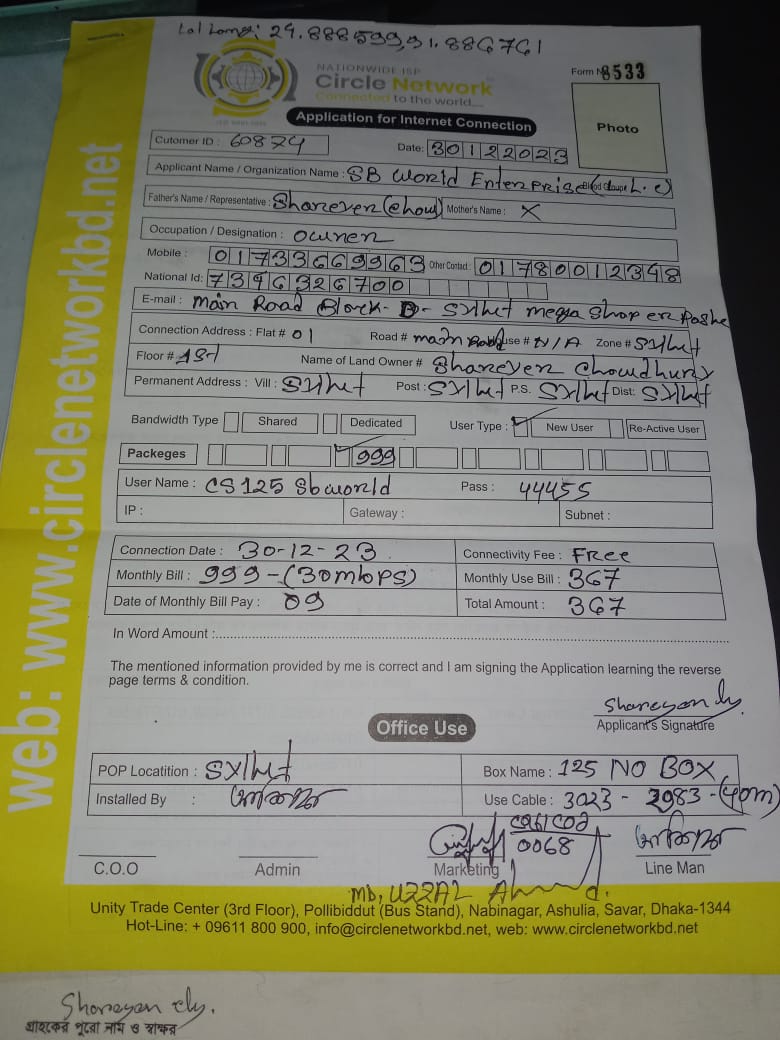 Lat Long: 24.888599,91.886761
NATIONWIDE ISP
Circle Network
Connected to the world....
Form No 8533
Photo
Application for Internet Connection
Cutomer ID : 60874
Date: 30122023
Applicant Name / Organization Name : SB World Enterprise
Father's Name / Representative : Mother's Name : X
Occupation / Designation : owner
Mobile : 01733669963 Other Contact : 01780012348
National Id: 7396326700
E-mail : main Road Block-D- Sylhet mega Shop er Pashe
Connection Address : Flat # 01 Road # main Road House # N/A Zone # Sylhet
Floor # 1st Name of Land Owner # Shareyer Chowdhury
Permanent Address : Vill : Sylhet Post : Sylhet P.S. Sylhet Dist: Sylhet
Bandwidth Type Shared Dedicated User Type : New User Re-Active User
Packeges 999
User Name : CS125 Sbworld Pass : 44455
IP : Gateway : Subnet :
Connection Date : 30-12-23 Connectivity Fee : FRee
Monthly Bill : 999-(30mbps) Monthly Use Bill : 367
Date of Monthly Bill Pay : 09 Total Amount : 367
In Word Amount :
The mentioned information provided by me is correct and I am signing the Application learning the reverse
page terms & condition.
Applicant's Signature
Office Use
POP Locatition : Sylhet Box Name : 125 NO BOX
Installed By : Use Cable : 3023 - 2983-(40m)
0068
C.O.O Admin Marketing Line Man
MD, UZZAL Ahmed.
Unity Trade Center (3rd Floor), Pollibiddut (Bus Stand), Nabinagar, Ashulia, Savar, Dhaka-1344
Hot-Line: + 09611 800 900, info@circlenetworkbd.net, web: www.circlenetworkbd.net
web: www.circlenetworkbd.net
গ্রাহকের পুরো নাম ও স্বাক্ষর